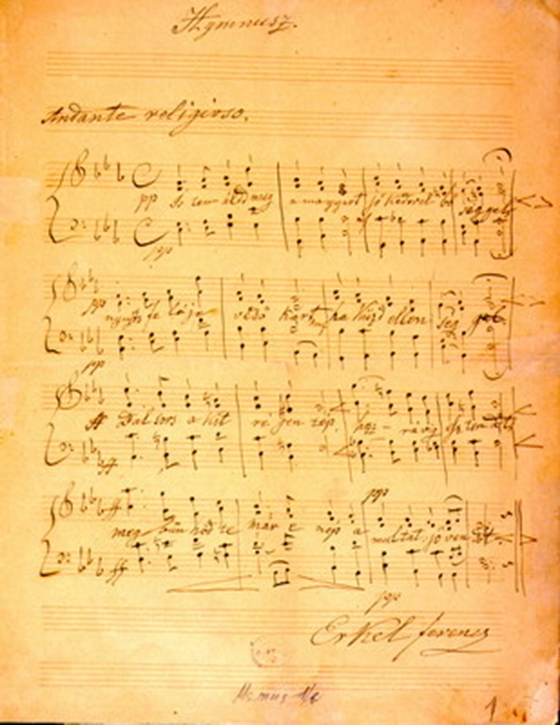 Hymnusz.
Andante religioso.
pp Isten áldd meg a magyart jó kedvvel bő séggel
pp
pp nyujts fe léje védő kart ha küzd ellen ség gel
pp
ff Bal sors a kit ré gen tép, hoz rá víg esz ten dőt
ff
pp
ff meg bűn hőd te már e nép a multat jöven dőt
ff
pp
Erkel ferencz
Ms. mus
1